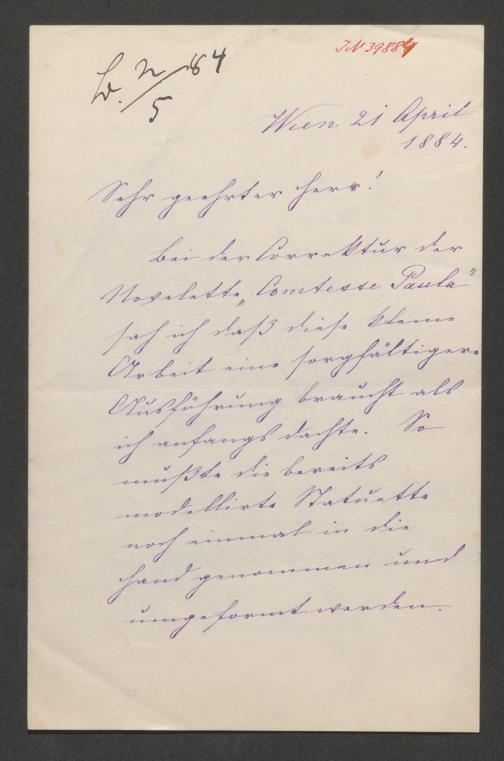 2/5 84
IN 39884
Wien 21 April
1884.
Sehr geehrter Herr!
Bei der Correktur der
Novelette „Comtesse Paula"
sah ich daß diese kleine
Arbeit eine sorgfältigere
Ausführung braucht als
ich anfangs dachte. So
mußte die bereits
modellirte Statuette
noch einmal in die
Hand genommen und
umgeformt werden.